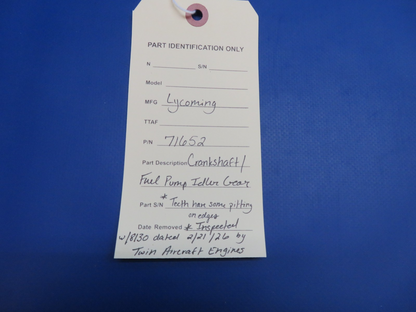 PART IDENTIFICATION ONLY
N S/N
Model
MFG Lycoming
TTAF
P/N 71652
Part Description Crankshaft/
Fuel Pump Idler Gear
Part S/N * Teeth have some pitting
on edges
Date Removed * Inspected
w/8130 dated 2/21/26 by
Twin Aircraft Engines